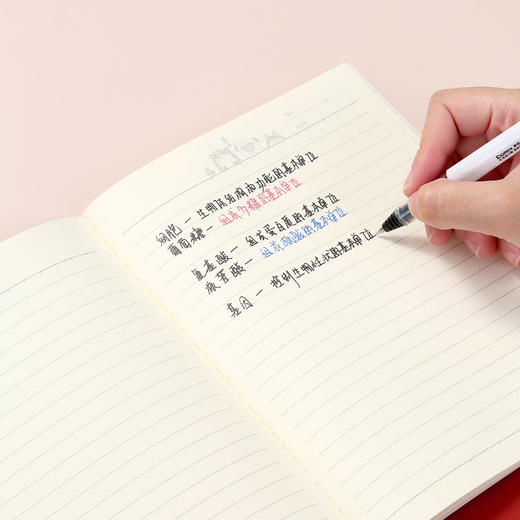 细胞 — 生物体结构和功能的基本单位
葡萄糖 — 组成多糖的基本单位
氨基酸 — 组成蛋白质的基本单位
核苷酸 — 组成核酸的基本单位
基因 — 控制生物性状的基本单位